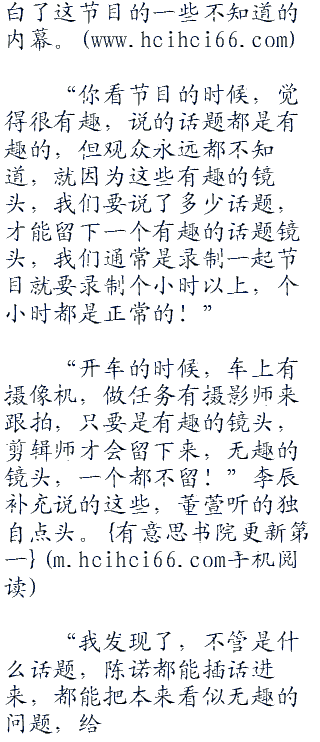 白了这节目的一些不知道的
内幕。(www.hcihci66.com)
“你看节目的时候，觉
得很有趣，说的话题都是有
趣的，但观众永远都不知
道，就因为这些有趣的镜
头，我们要说了多少话题，
才能留下一个有趣的话题镜
头，我们通常是录制一起节
目就要录制个小时以上，个
小时都是正常的！”
“开车的时候，车上有
摄像机，做任务有摄影师来
跟拍，只要是有趣的镜头，
剪辑师才会留下来，无趣的
镜头，一个都不留！”李辰
补充说的这些，董萱听的独
自点头。{有意思书院更新第
一}(m.hcihci66.com手机阅
读)
“我发现了，不管是什
么话题，陈诺都能插话进
来，都能把本来看似无趣的
问题，给